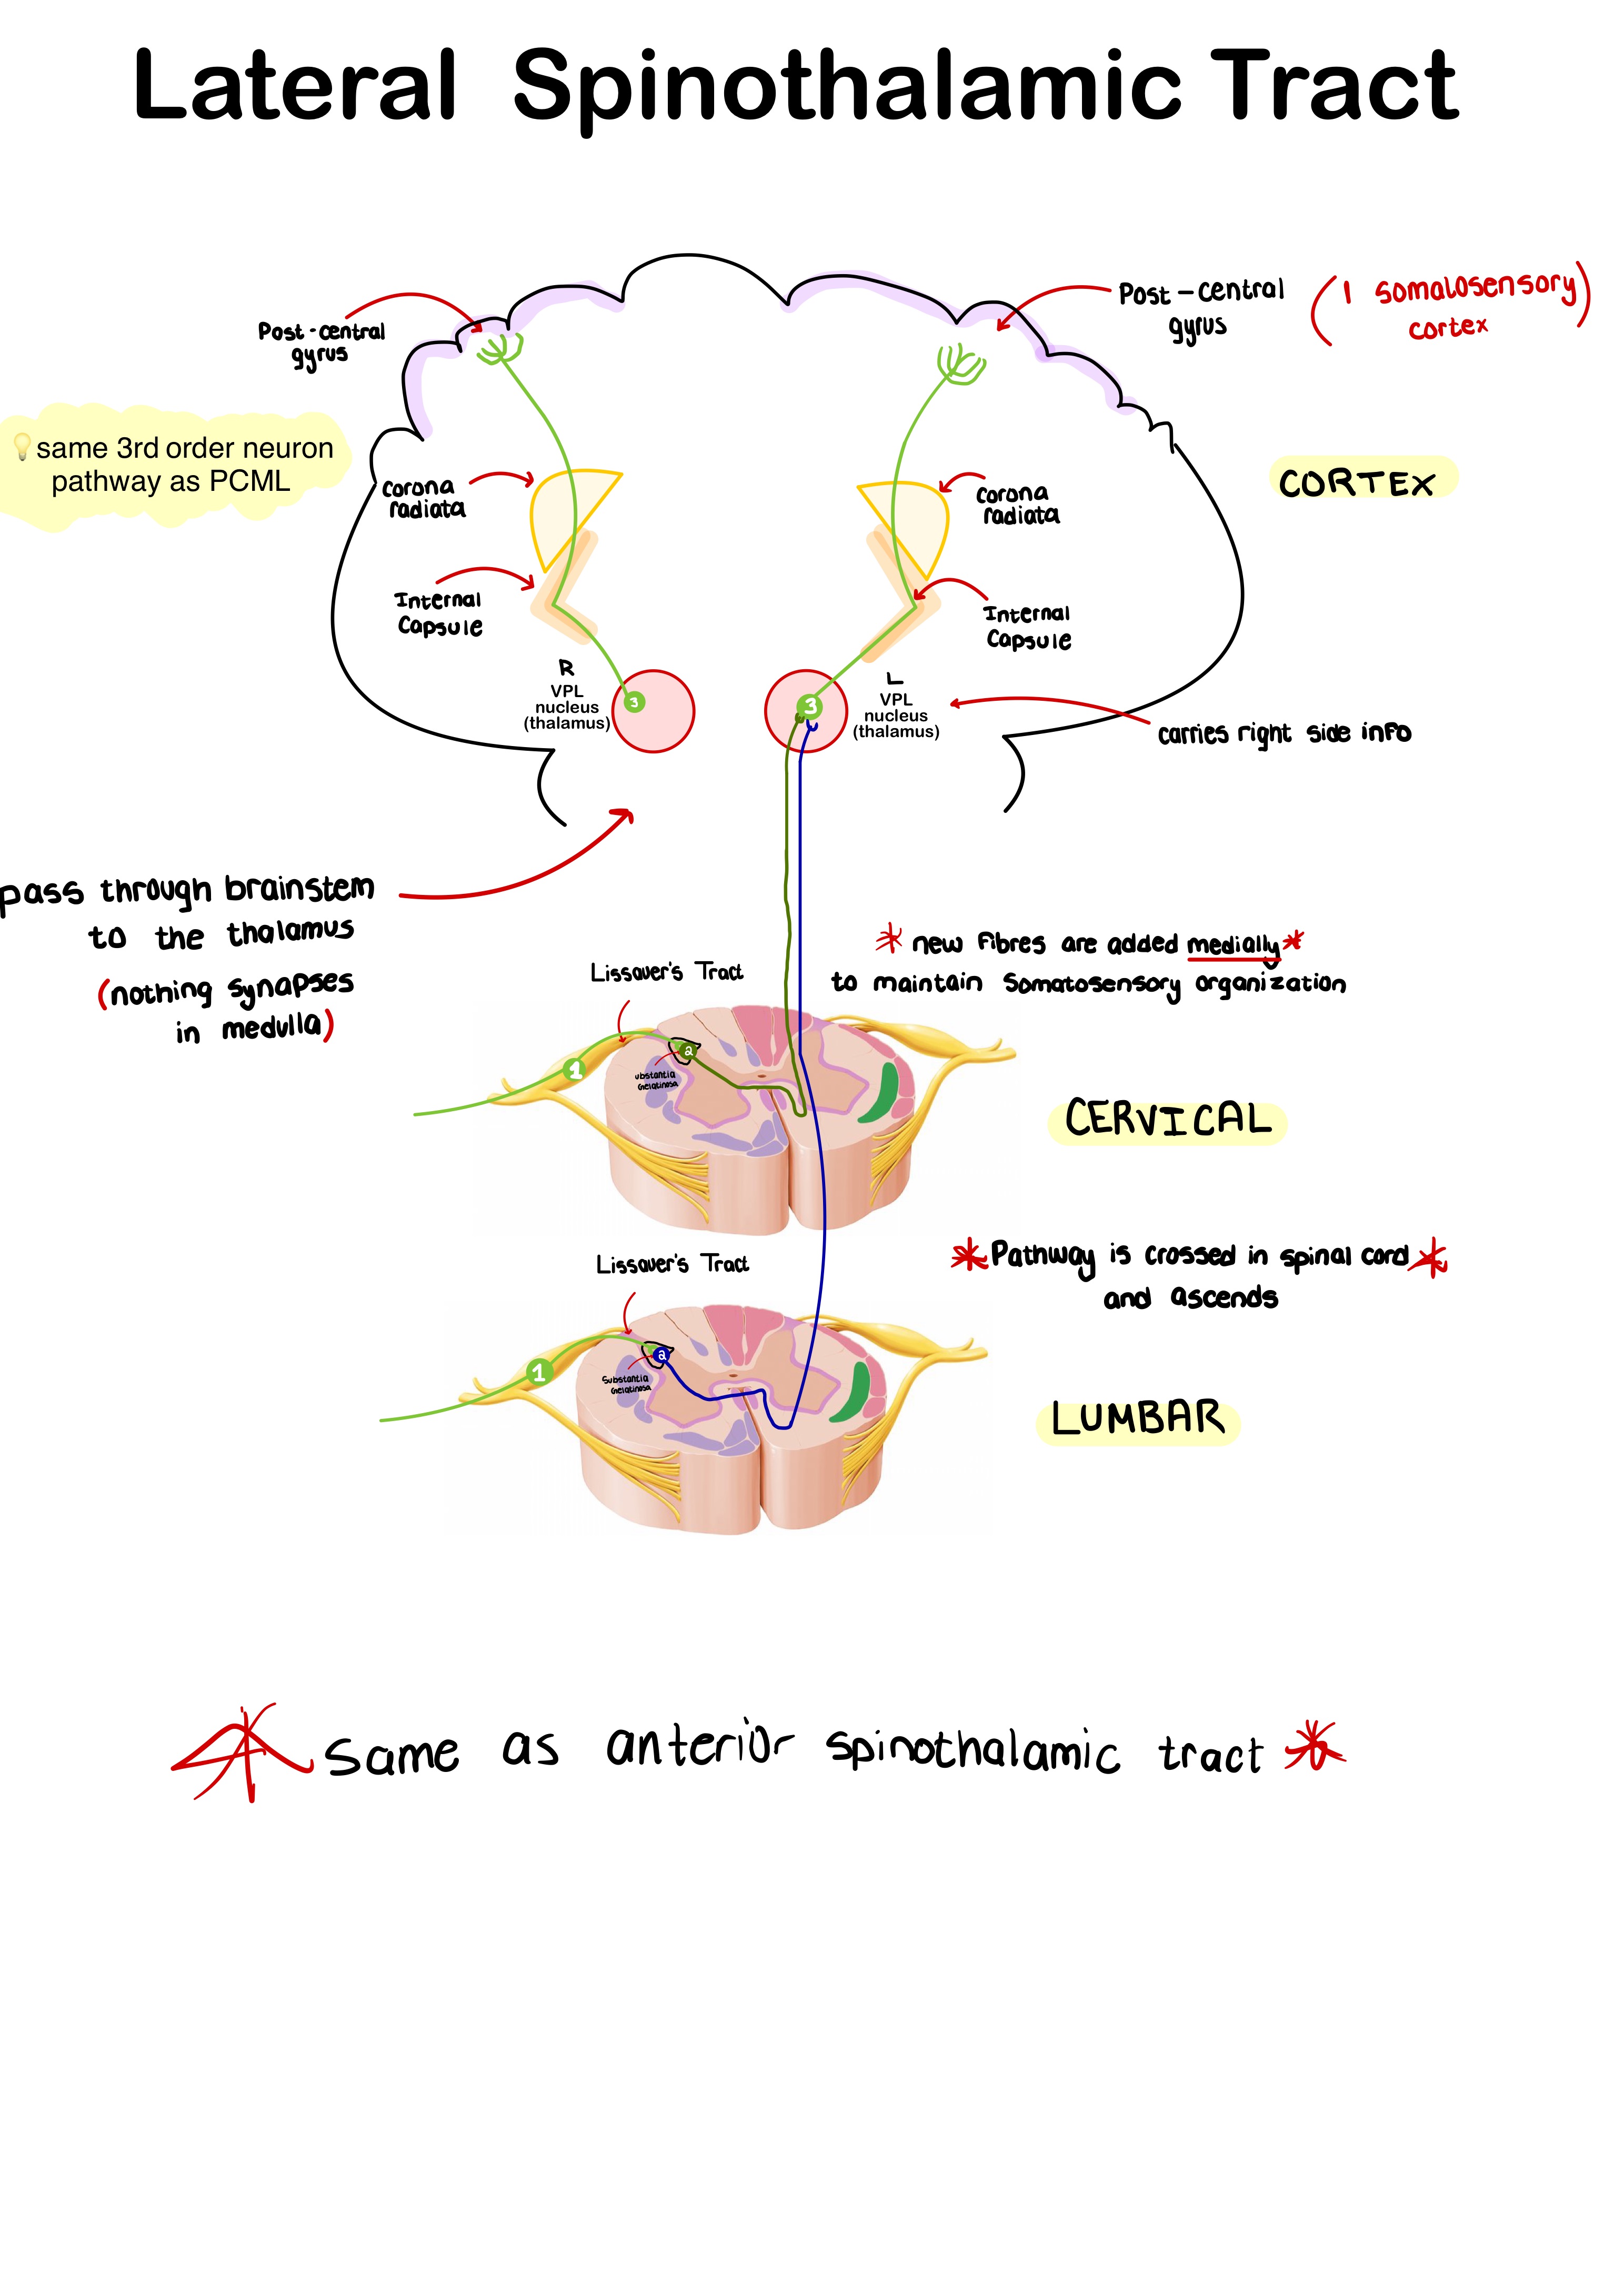 Lateral Spinothalamic Tract
Post-central
gyrus
Post-central
gyrus
(1 somatosensory)
cortex
same 3rd order neuron
pathway as PCML
Corona
radiata
Corona
radiata
CORTEX
Internal
Capsule
Internal
Capsule
R
VPL
nucleus
(thalamus)
3
3
L
VPL
nucleus
(thalamus)
carries right side info
pass through brainstem
to the thalamus
(nothing synapses
in medulla)
* new fibres are added medially*
to maintain Somatosensory organization
Lissauer's Tract
1
2
ubstantia
Gelatinosa
CERVICAL
*Pathway is crossed in spinal cord*
and ascends
Lissauer's Tract
1
2
Substantia
Gelatinosa
LUMBAR
* Same as anterior spinothalamic tract *